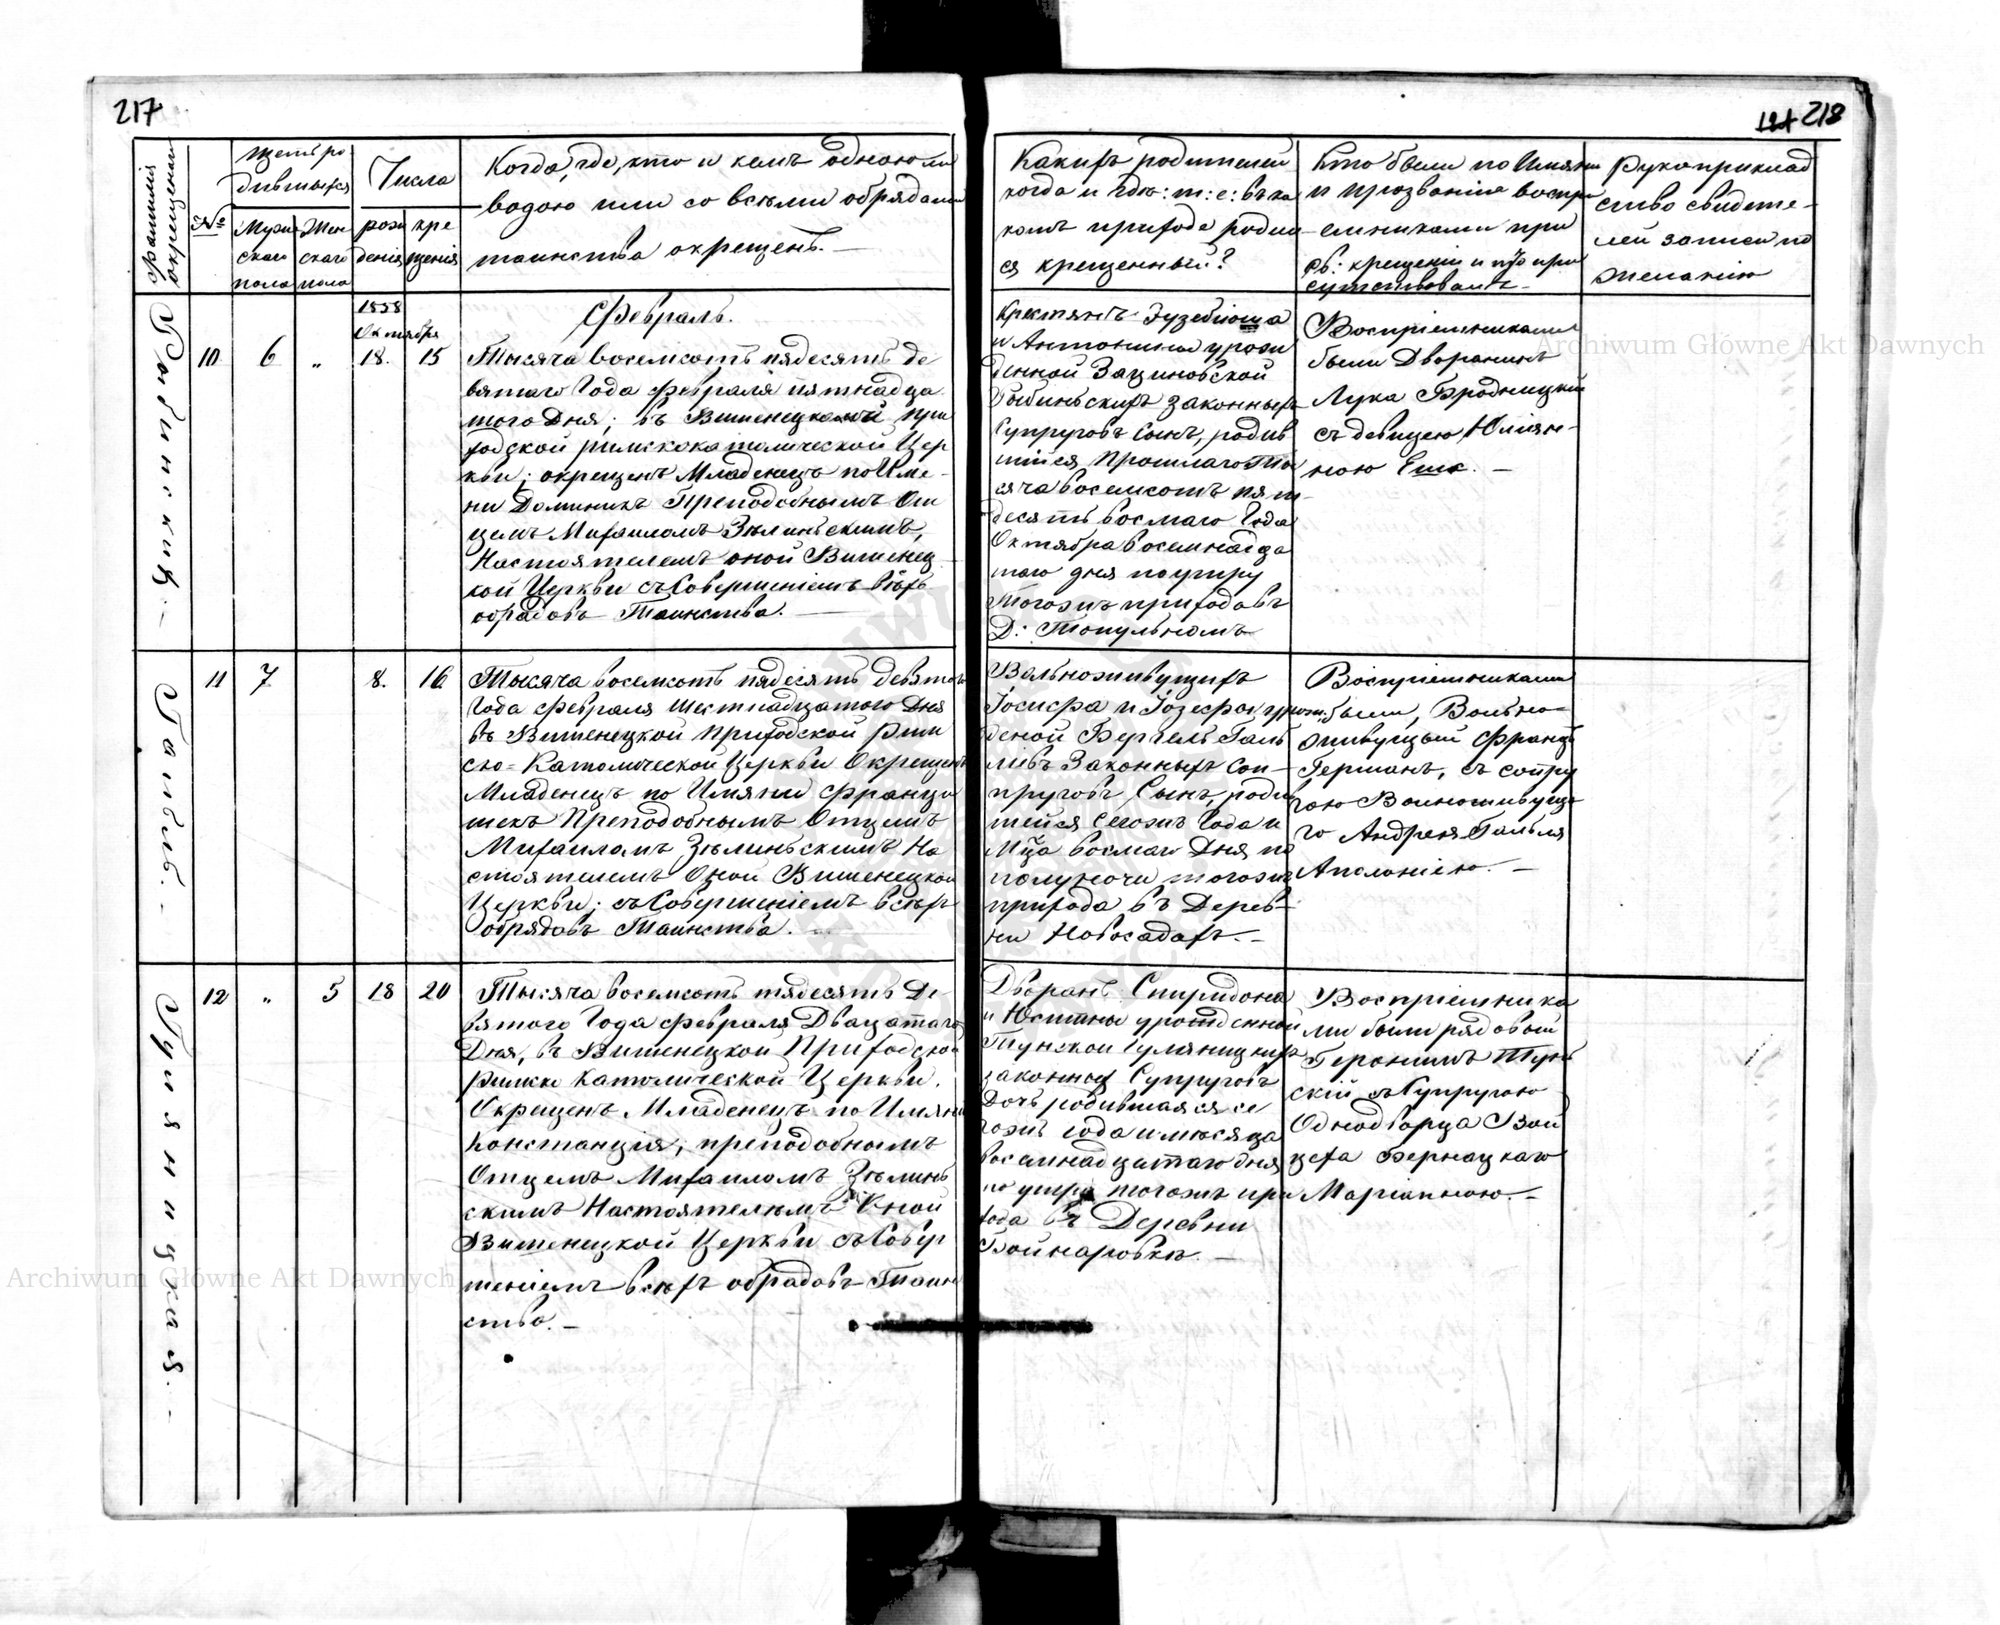 217
218
Фамилія младенца
№
Щетъ ро
дившихся
Числа
Когда, где, кто и кемъ одною ли
водою или со всеми обрядами
таинства окрещенъ. —
Муже
скаго
пола
Жен
скаго
пола
рож
денія
кре
щенія
Какихъ родителей
когда и где: т: е: въ ка
комъ приходе родил
ся крещенный?
Кто были по Имяни
и прозванію воспри
емниками при
св: крещеніи и кто при
сутствовалъ
Рукоприклад
ство свидете-
лей записи по
желанію
1858
Октября
Февраль.
10 6 „ 18. 15
Тысяча восемсотъ пядесятъ де
вятаго Года февраля пятнадца
таго Дня; въ Вишенецкой при
ходской римскокатолической Цер
кви; окрещенъ Младенецъ по Име-
ни Доминикъ Преподобнымъ От
цемъ Михаиломъ Зѣлинскимъ,
Настоятелемъ оной Вишенец
кой Церкви съ Совершеніемъ всѣхъ
обрядовъ Таинства. —
Крестянъ Эузебіюша
и Антонины урож
денной
законныхъ
Супруговъ Сынъ, родив
шійся прошлаго Ты
сяча восемсотъ пят-
десятъ восмаго Года
Октября восемнадца
таго дня поутру
Тогожъ прихода въ
Д: Топульномъ
Воспріемниками
были Дворянинъ
Лука Бродницкій
съ девицею Юліян-
ною
11 7 8. 16
Тысяча восемсотъ пядесятъ девятаго
Года февраля шестнадцатого Дня
въ Вишенецкой приходской Рим
ско-Католической Церкви Окрещенъ
Младенецъ по Имяни Францы
шекъ Преподобнымъ Отцемъ
Михаиломъ Зѣлинскимъ На
стоятелемъ Оной Вишенецкой
Церкви; съ Совершеніемъ всѣхъ
обрядовъ Таинства.
Вольноживущихъ
Іосифа и Іозефы урож
деной
Законныхъ Соп-
руговъ Сынъ, роди
шейся сегожъ Года и
Мца восмаго Дня по
полуночи тогожъ
прихода въ Дерев-
ни Новосадахъ. —
Воспріемниками
были, Вольно-
живущый Францъ
Германъ, съ супру
гою Волноживуще
го Андрея
Аполоніею. —
12 „ 5 18 20
Тысяча восемсотъ пядесятъ Де
вятого Года февраля Двацатаго
Дня, въ Вишенецкой Приходской
Римско Католической Церкви.
Окрещенъ Младенецъ по Имяни
Констанція; преподобнымъ
Отцемъ Михаиломъ Зѣлинь
скимъ Настоятелемъ Оной
Вишенецкой Церкви съ Совер
шеніемъ всѣхъ обрядовъ Таин
ства. —
Дворянъ Спиридона
и Юстины урожденной
законныхъ Супруговъ
Дочь родившаяся се
гожъ года и месяца
восемнадцатаго дня
по утру тогожъ при
хода въ Деревни
Войнаровкѣ. —
Воспріемника
ми были рядовый
Геронимъ Тун
скій съ Супругою
Однодворца Вой
цеха Бернацкаго
Маріянною. —
Archiwum Główne Akt Dawnych
Archiwum Główne Akt Dawnych